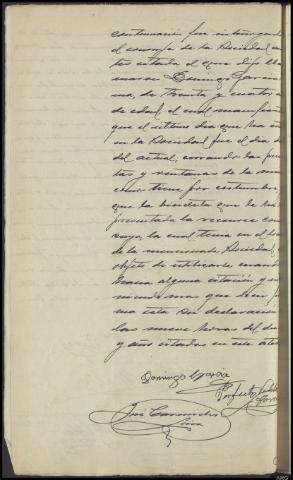 continuacion fue interrogado
el conserje de la Sociedad an-
tes citada el que dijo lla-
marse Domingo Garcia
de treinta y cuatro a
de edad, el cual manifiesta
que el ultimo dia que
en la Sociedad fue el dia
del actual, cerrando las puer-
tas y ventanas de la
como tiene por costumbre,
que la bicicleta que le han
presentado la reconoce como
suya, la cual tenia en el lo
de la mencionada Sociedad
objeto de utilizarla cuando
alguna citación y
mas que
esta su declaración
las nueve horas del dia
y año citados en este ates
Domingo
Perfecto
José